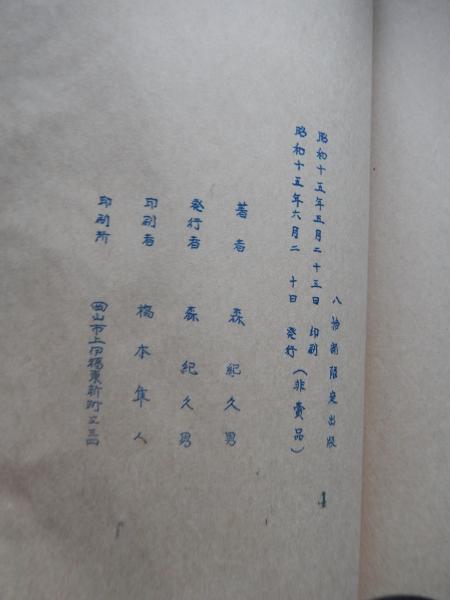 八拾部限定出版
昭和十五年五月二十三日 印刷
昭和十五年六月二十日 発行(非賣品)
著者 森紀久男
発行者 森紀久男
印刷者 橋本隼人
印刷所 岡山市上伊福東新町